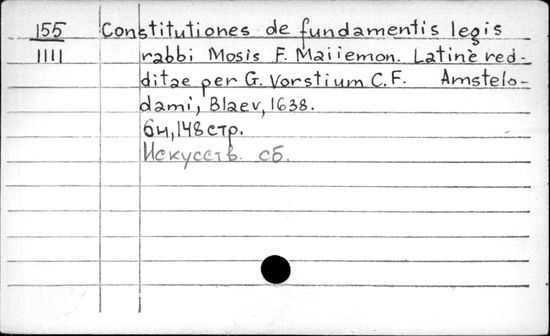 155 Constitutiones de fundamentis legis
1111 rabbi Mosis F. Maiiemon. Latinè red-
ditae per G. Vorstium C.F. Amstelo-
dami, Blaev, 1638.
6н, 148 стр.
Искусств. сб.